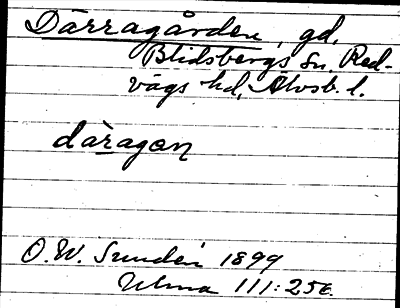 Därragården, gd,
Blidsbergs sn, Red-
vägs hd, Älvsb. l.
däragaɳ
O. W. Sundén 1899
Ulma 111:256.